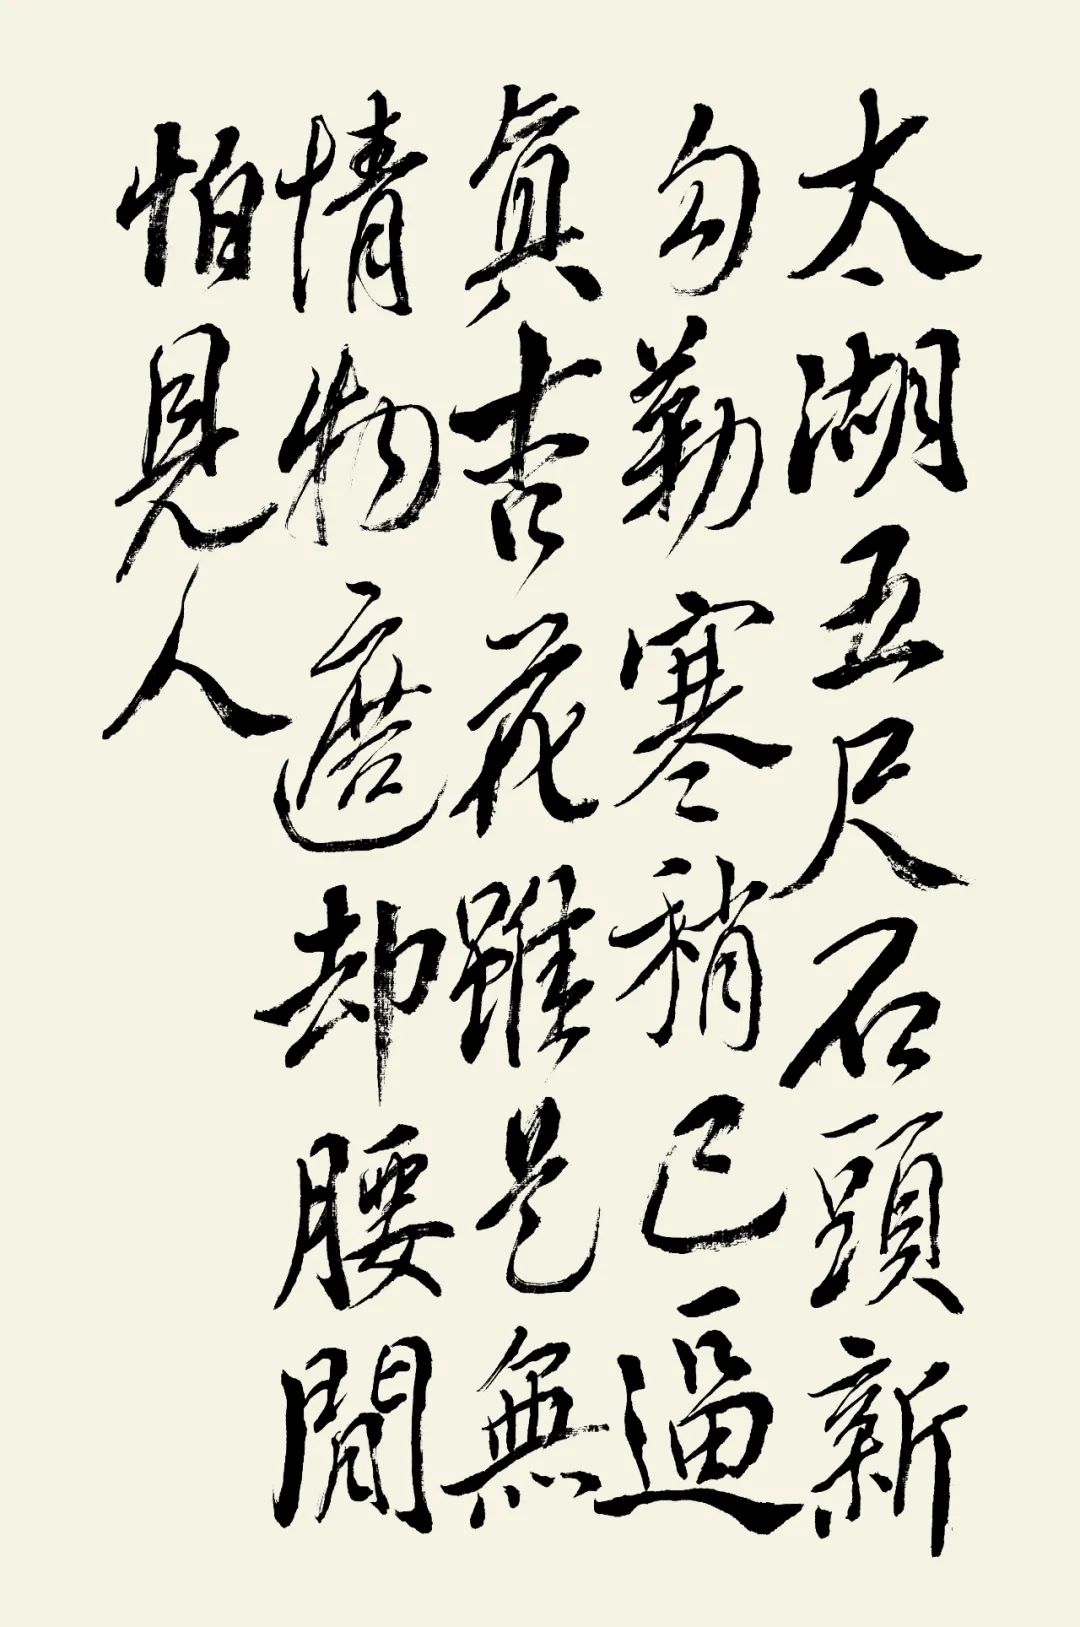 太湖五尺石頭新
勿勒寒稍已逼
真杏花雖是無
情物遮却腰間
怕見人